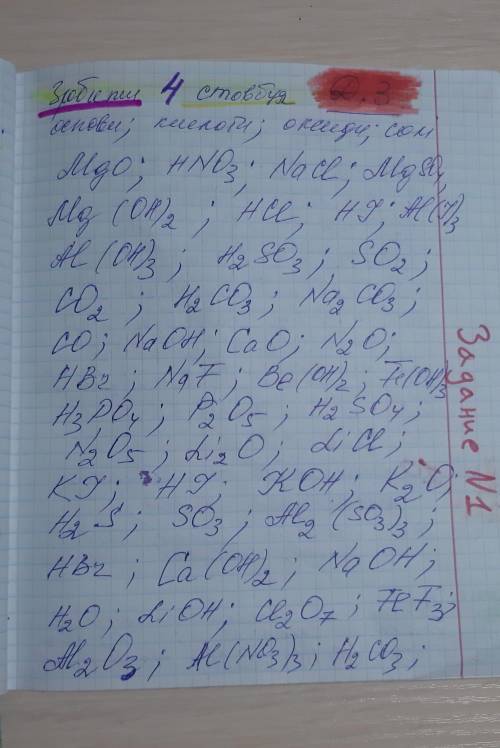 Зробити 4 стовбця Д.З
основи; кислоти; оксиди; солі
MgO; HNO3; NaCl; MgSO4
Mg(OH)2; HCl; HJ; Al(J)3
Al(OH)3; H2SO3; SO2;
CO2; H2CO3; Na2CO3;
CO; NaOH; CaO; N2O;
HBr; NaF; Be(OH)2; Fe(OH)3
H3PO4; P2O5; H2SO4;
N2O5; Li2O; LiCl;
KJ; HJ; KOH; K2O;
H2S; SO3; Al2(SO3)3;
HBr; Ca(OH)2; NaOH;
H2O; LiOH; Cl2O7; FeF3;
Al2O3; Al(NO3)3; H2CO3;
Задание N1